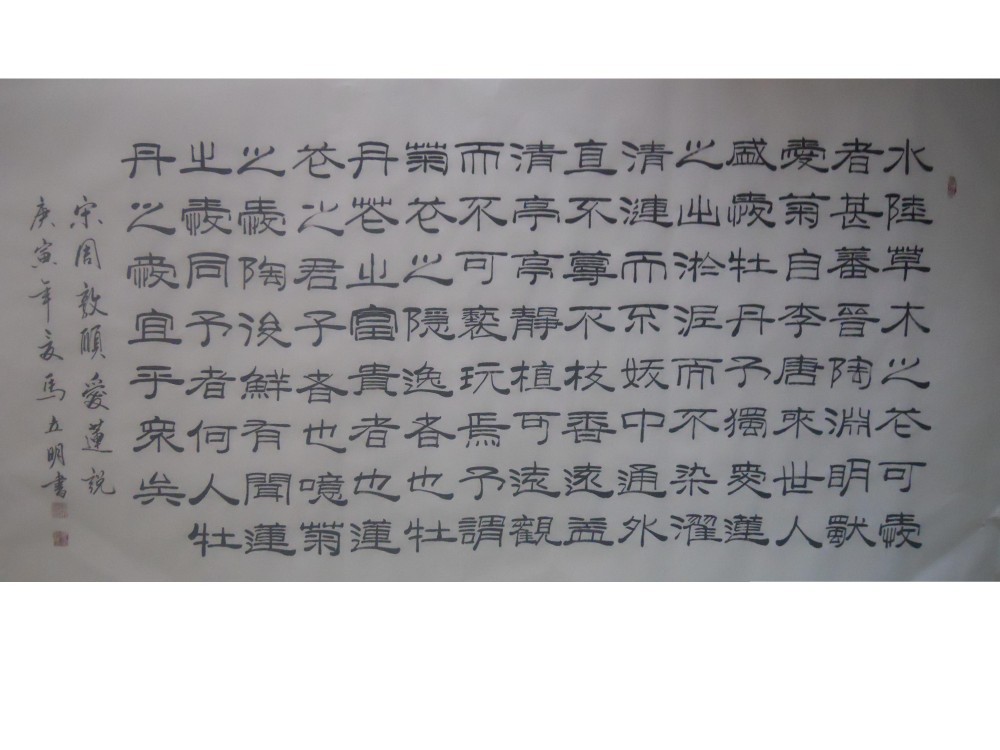 水陸草木之花可愛
者甚蕃晉陶淵明獨
愛菊自李唐來世人
盛愛牡丹予獨愛蓮
之出淤泥而不染濯
清漣而不妖中通外
直不蔓不枝香遠益
清亭亭靜植可遠觀
而不可褻玩焉予謂
菊花之隱逸者也牡
丹花之富貴者也蓮
花之君子者也噫菊
之愛陶後鮮有聞蓮
之愛同予者何人牡
丹之愛宜乎衆矣
宋周敦頤愛蓮說
庚寅年夏馬五明書